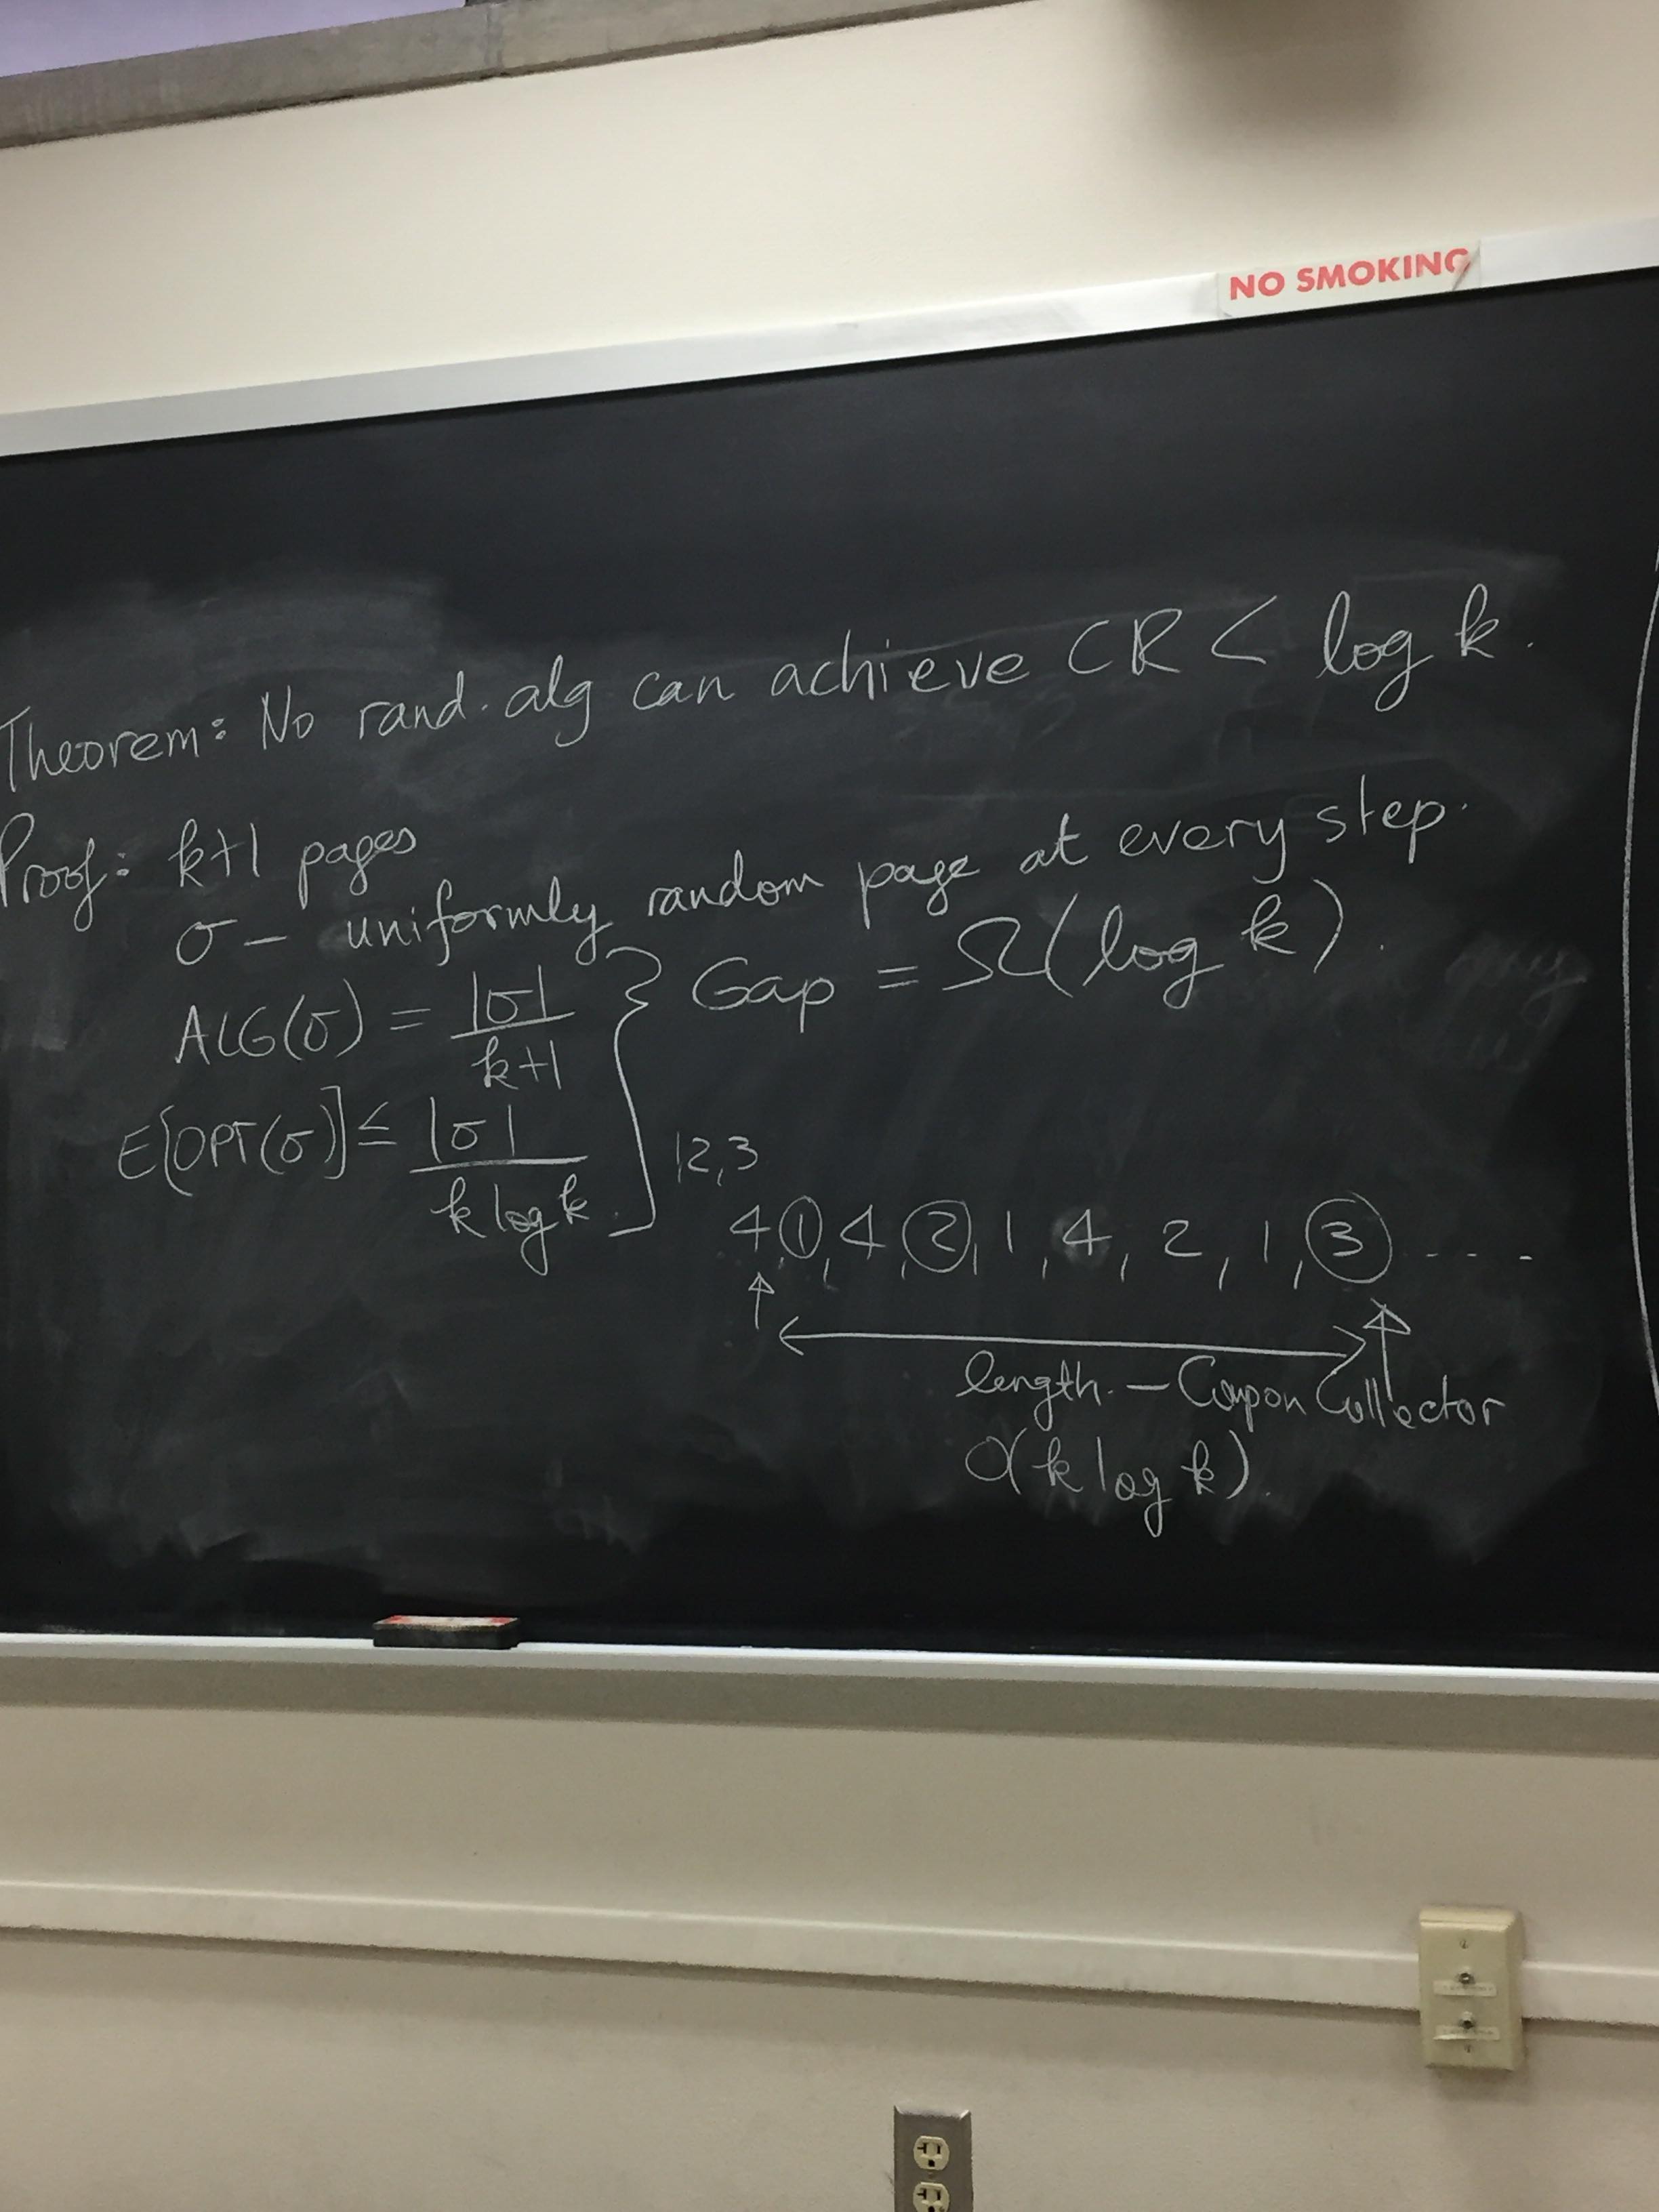 NO SMOKING
Theorem: No rand. alg can achieve CR < log k.
Proof: k+1 pages
σ – uniformly random page at every step.
ALG(σ) = |σ| / k+1
E[OPT(σ)] ≤ |σ| / k log k
} Gap = Ω(log k).
1,2,3
4, 1, 4, 2, 1, 4, 2, 1, 3 ....
length. – Coupon Collector
O(k log k).